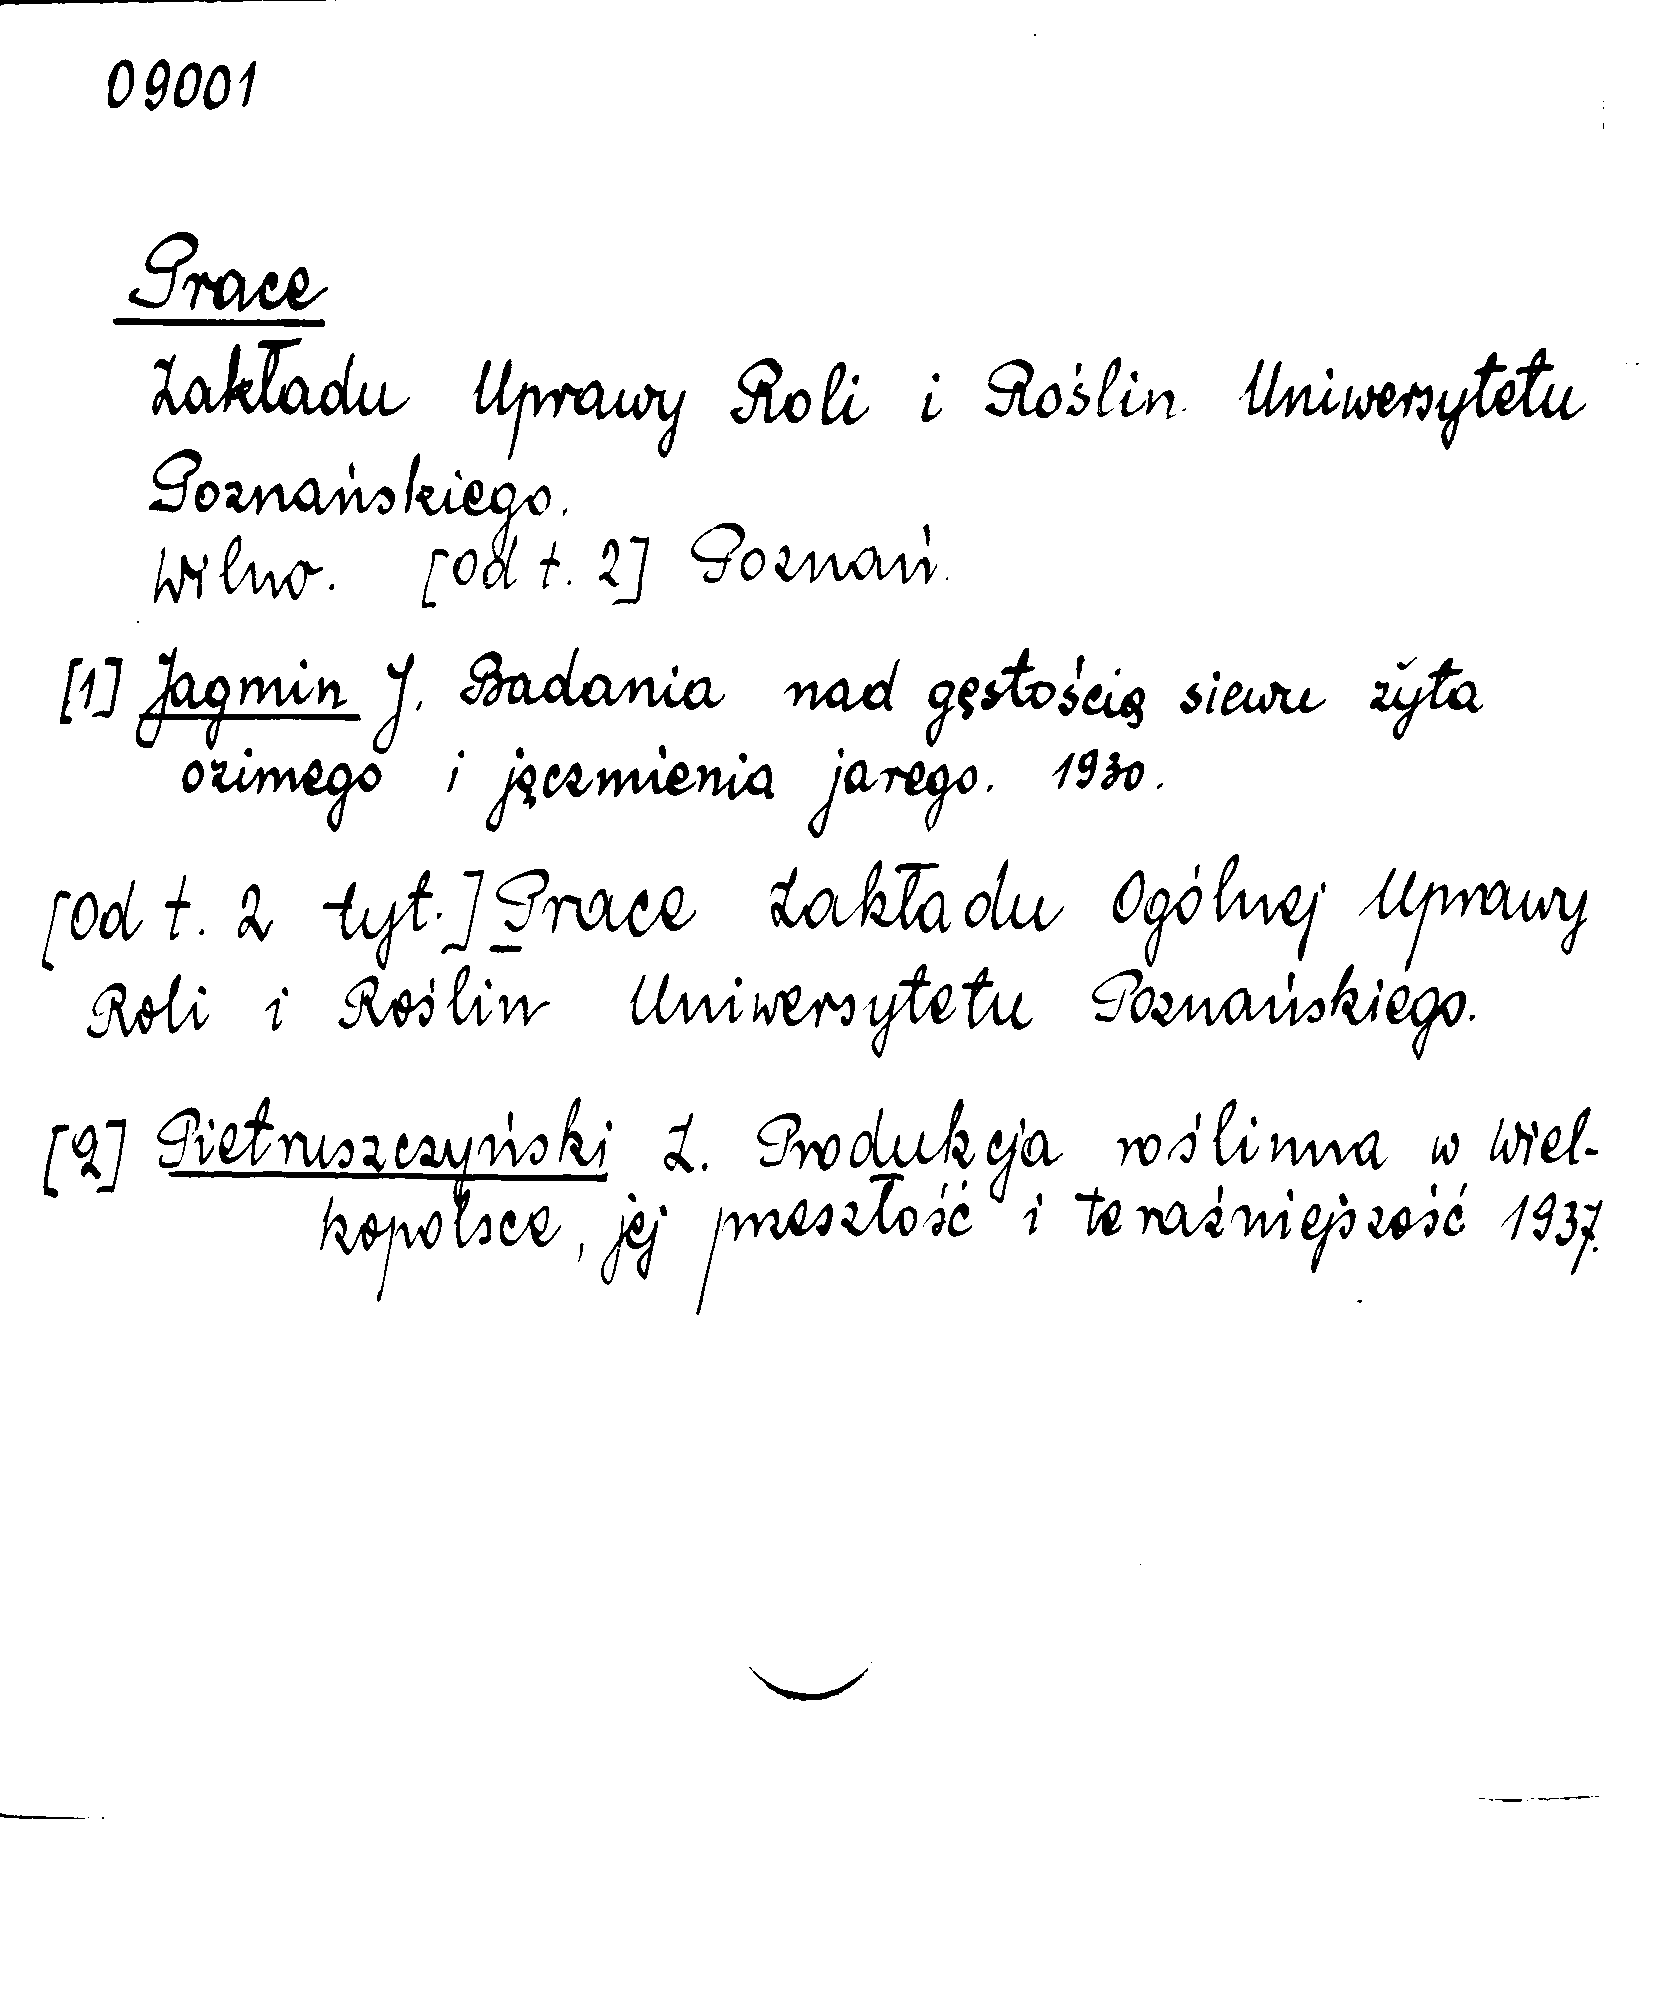 09001
Prace
Zakładu Uprawy Roli i Roślin Uniwersytetu
Poznańskiego.
Wilno. [Od t. 2] Poznań.
[1] Jagmin J. Badania nad gęstością siewu żyta
ozimego i jęczmienia jarego. 1930.
[Od t. 2 tyt.] Prace Zakładu Ogólnej Uprawy
Roli i Roślin Uniwersytetu Poznańskiego.
[2] Pietruszczyński Z. Produkcja roślinna w Wiel-
kopolsce, jej przeszłość i teraźniejszość 1937.